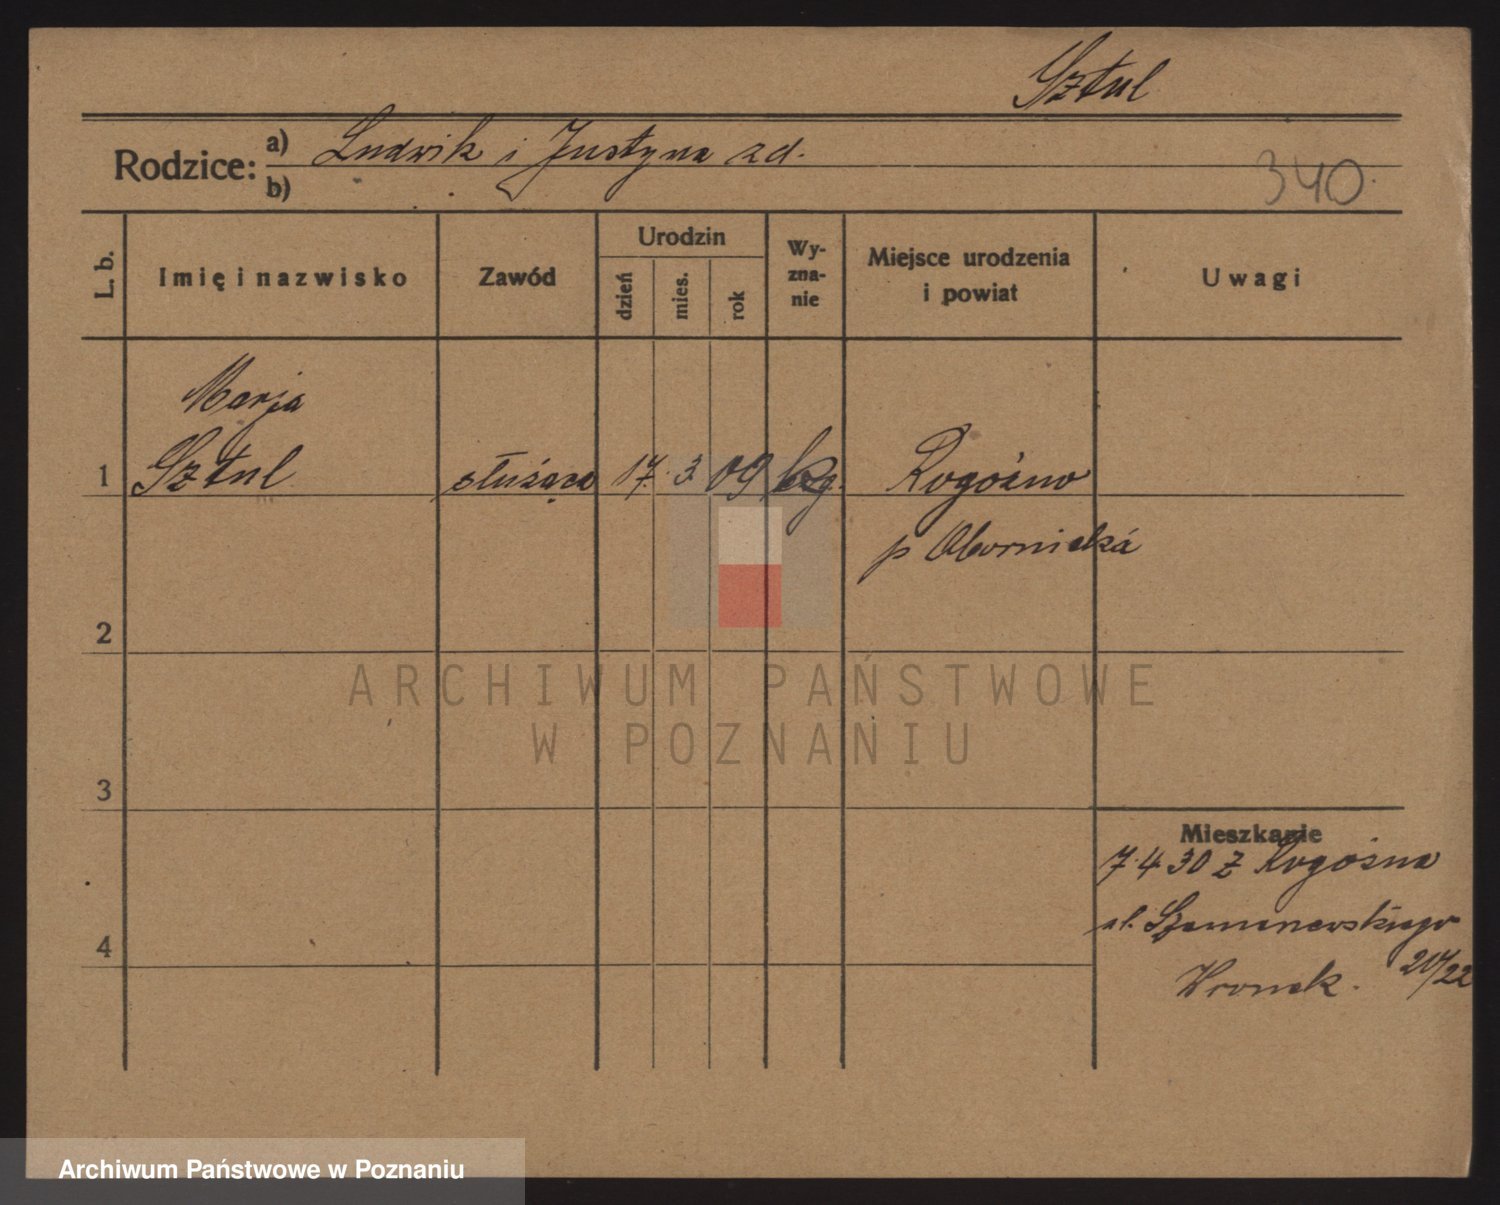 Sztul
Rodzice: a) Ludwik i Justyna zd.
b)
340
L. b.
Imię i nazwisko
Zawód
Urodzin
dzień
mies.
rok
Wy-
zna-
nie
Miejsce urodzenia
i powiat
Uwagi
Marja
1 Sztul służąca 17. 3 09 Rogoźno
p Obornicka
2
ARCHIWUM PAŃSTWOWE
W POZNANIU
3
Mieszkanie
7.4 30 z Rogoźna
ul. Szamarzewskiego
20/22
Wronek.
4
Archiwum Państwowe w Poznaniu